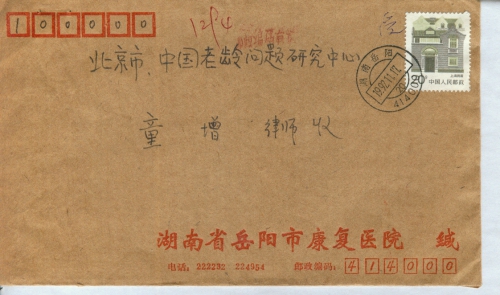 100000
1294
北京市、中国老龄问题研究中心
童 增 律师 收
湖南岳阳
1992.11.17.20
414000
20
中国人民邮政
湖南省岳阳市康复医院 缄
电话：222232 224954
邮政编码：414000